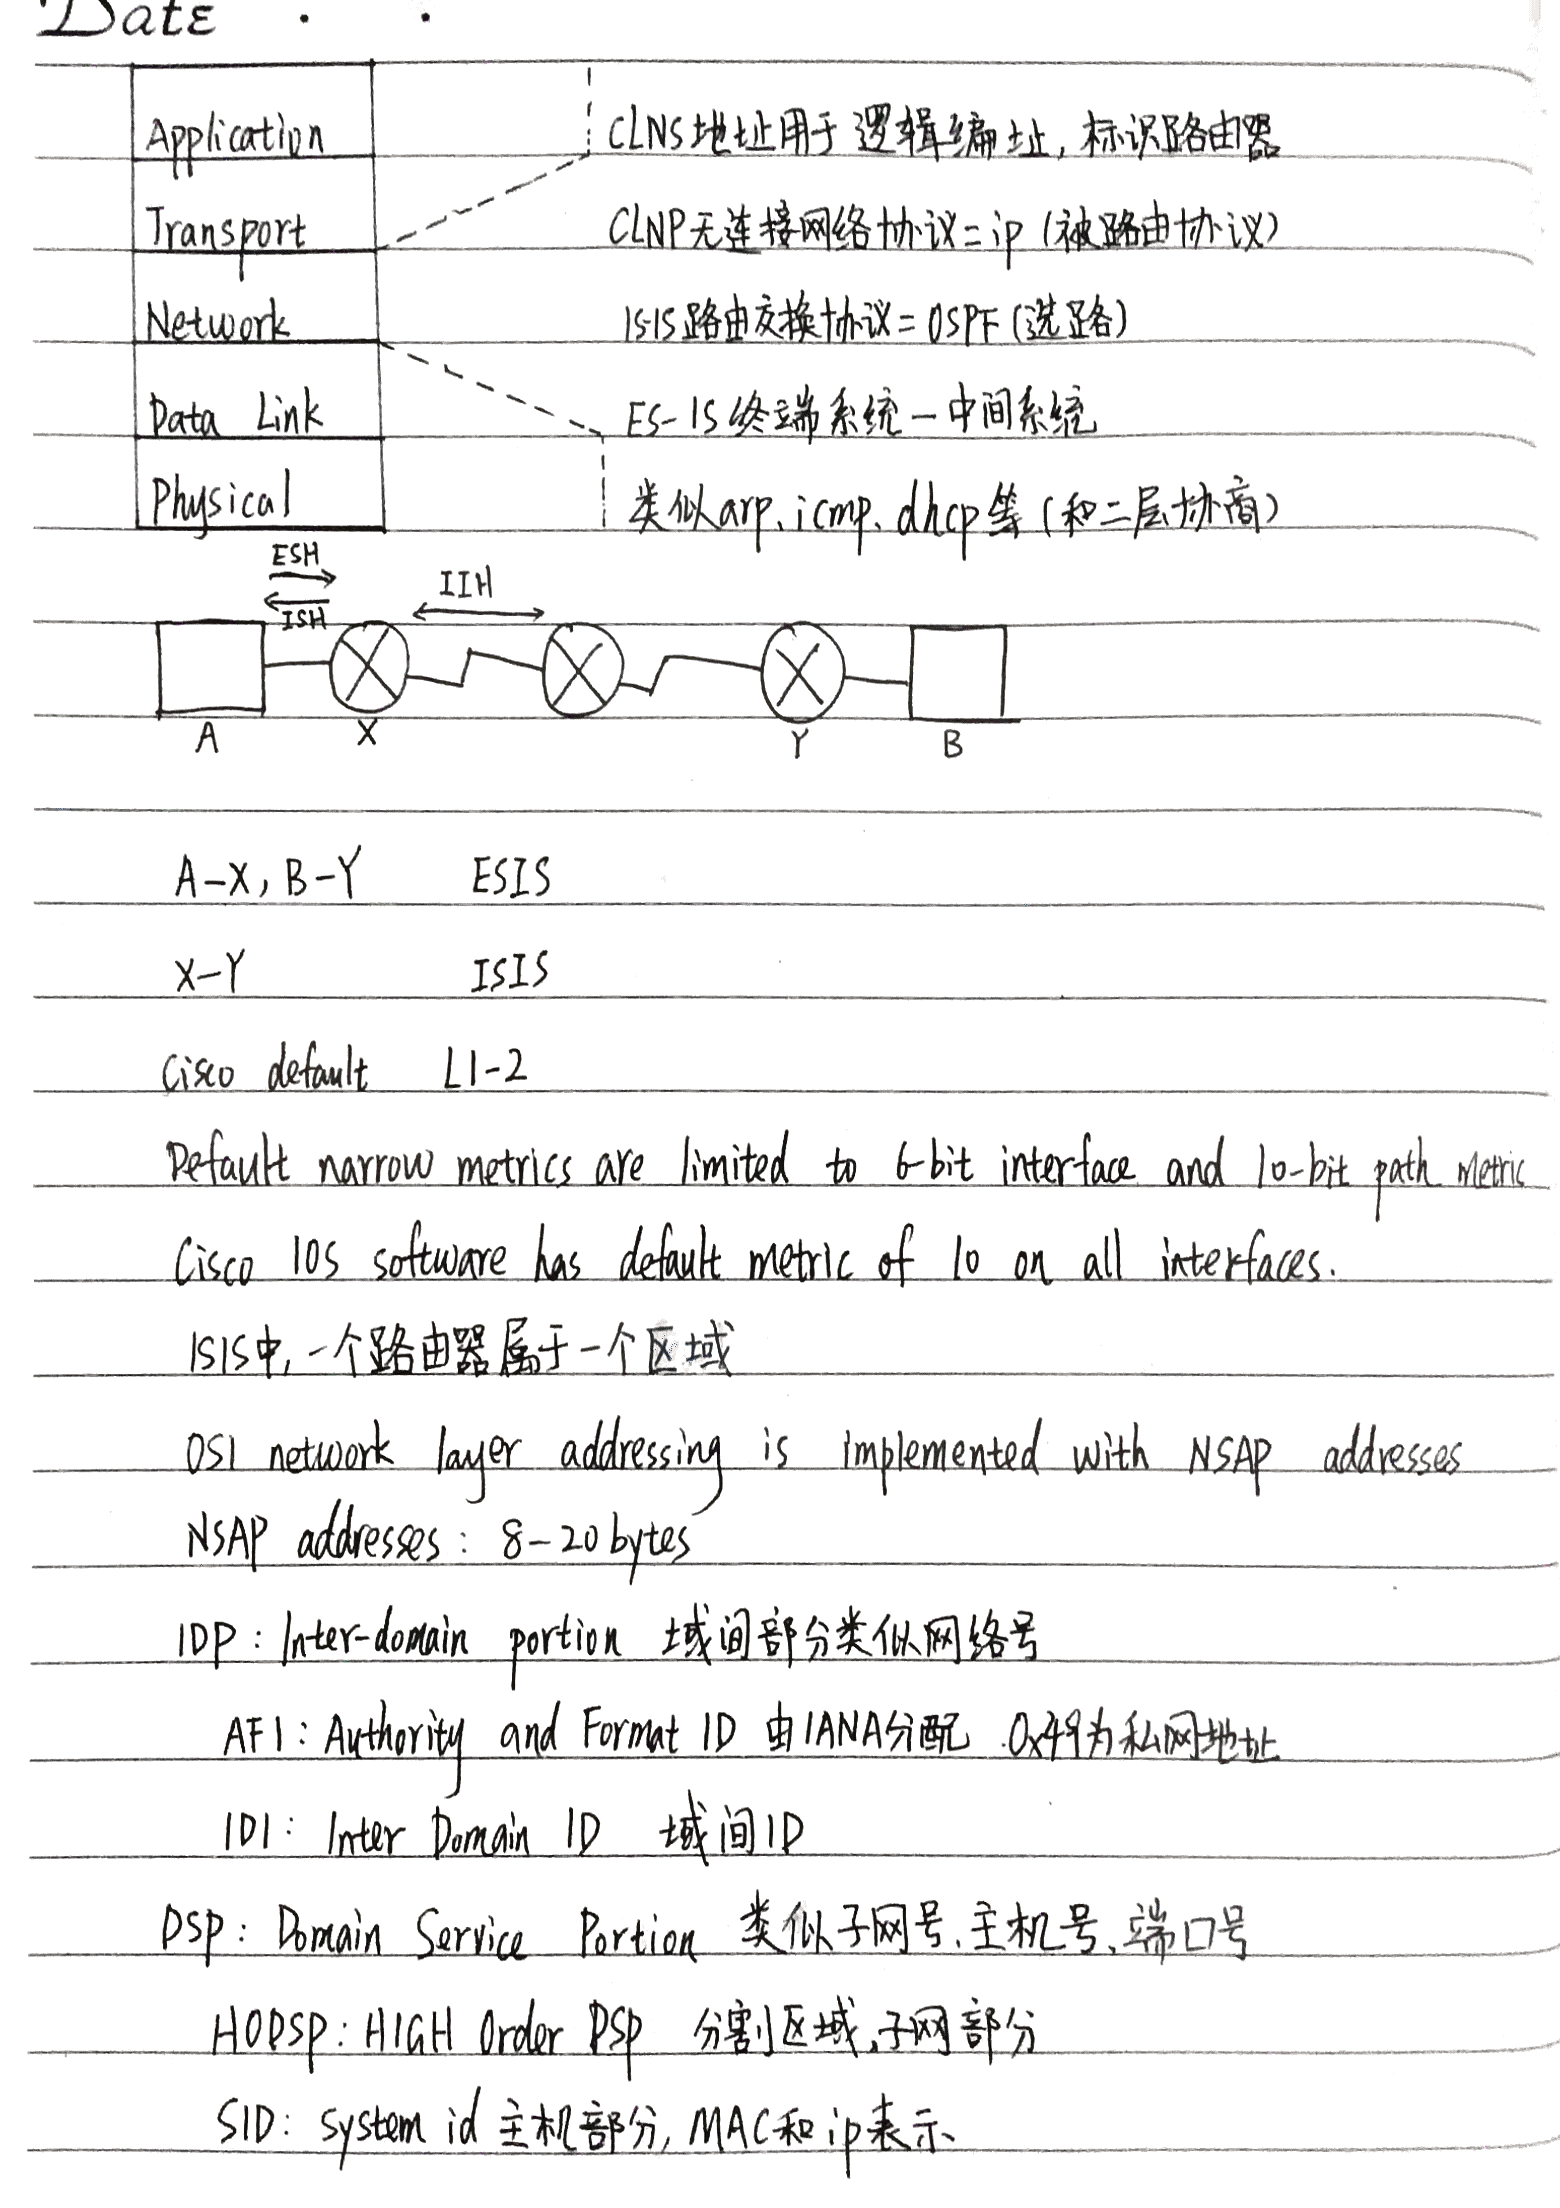 Date
Application
CLNS地址用于逻辑编址, 标识路由器
Transport
CLNP无连接网络协议=ip (被路由协议)
Network
ISIS路由交换协议=OSPF (选路)
Data Link
ES-IS 终端系统-中间系统
Physical
类似arp、icmp、dhcp等 (和二层协商)
ESH
ISH
IIH
A X Y B
A-X, B-Y ESIS
X-Y ISIS
Cisco default L1-2
Default narrow metrics are limited to 6-bit interface and 10-bit path metric
Cisco IOS software has default metric of 10 on all interfaces.
ISIS中, 一个路由器属于一个区域
OSI network layer addressing is implemented with NSAP addresses
NSAP addresses: 8-20 bytes
IDP: Inter-domain portion 域间部分类似网络号
AFI: Authority and Format ID 由IANA分配 0x49为私网地址
IDI: Inter Domain ID 域间ID
DSP: Domain Service Portion 类似子网号、主机号、端口号
HODSP: HIGH Order DSP 分割区域,子网部分
SID: System id 主机部分, MAC和ip表示